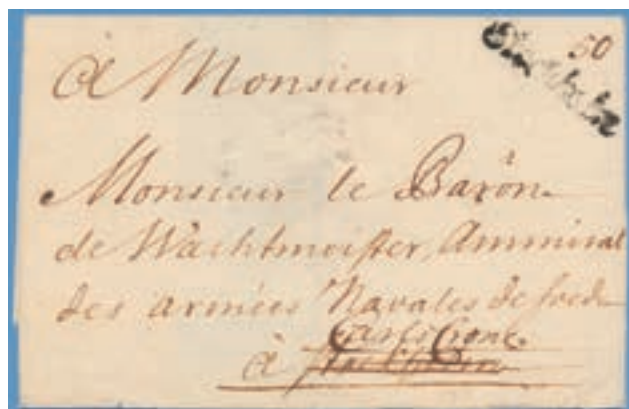 50
à Monsieur
Monsieur le Baron
de Wachtmeister, Ammiral
des armées Navales de suede
Carls Crone
à